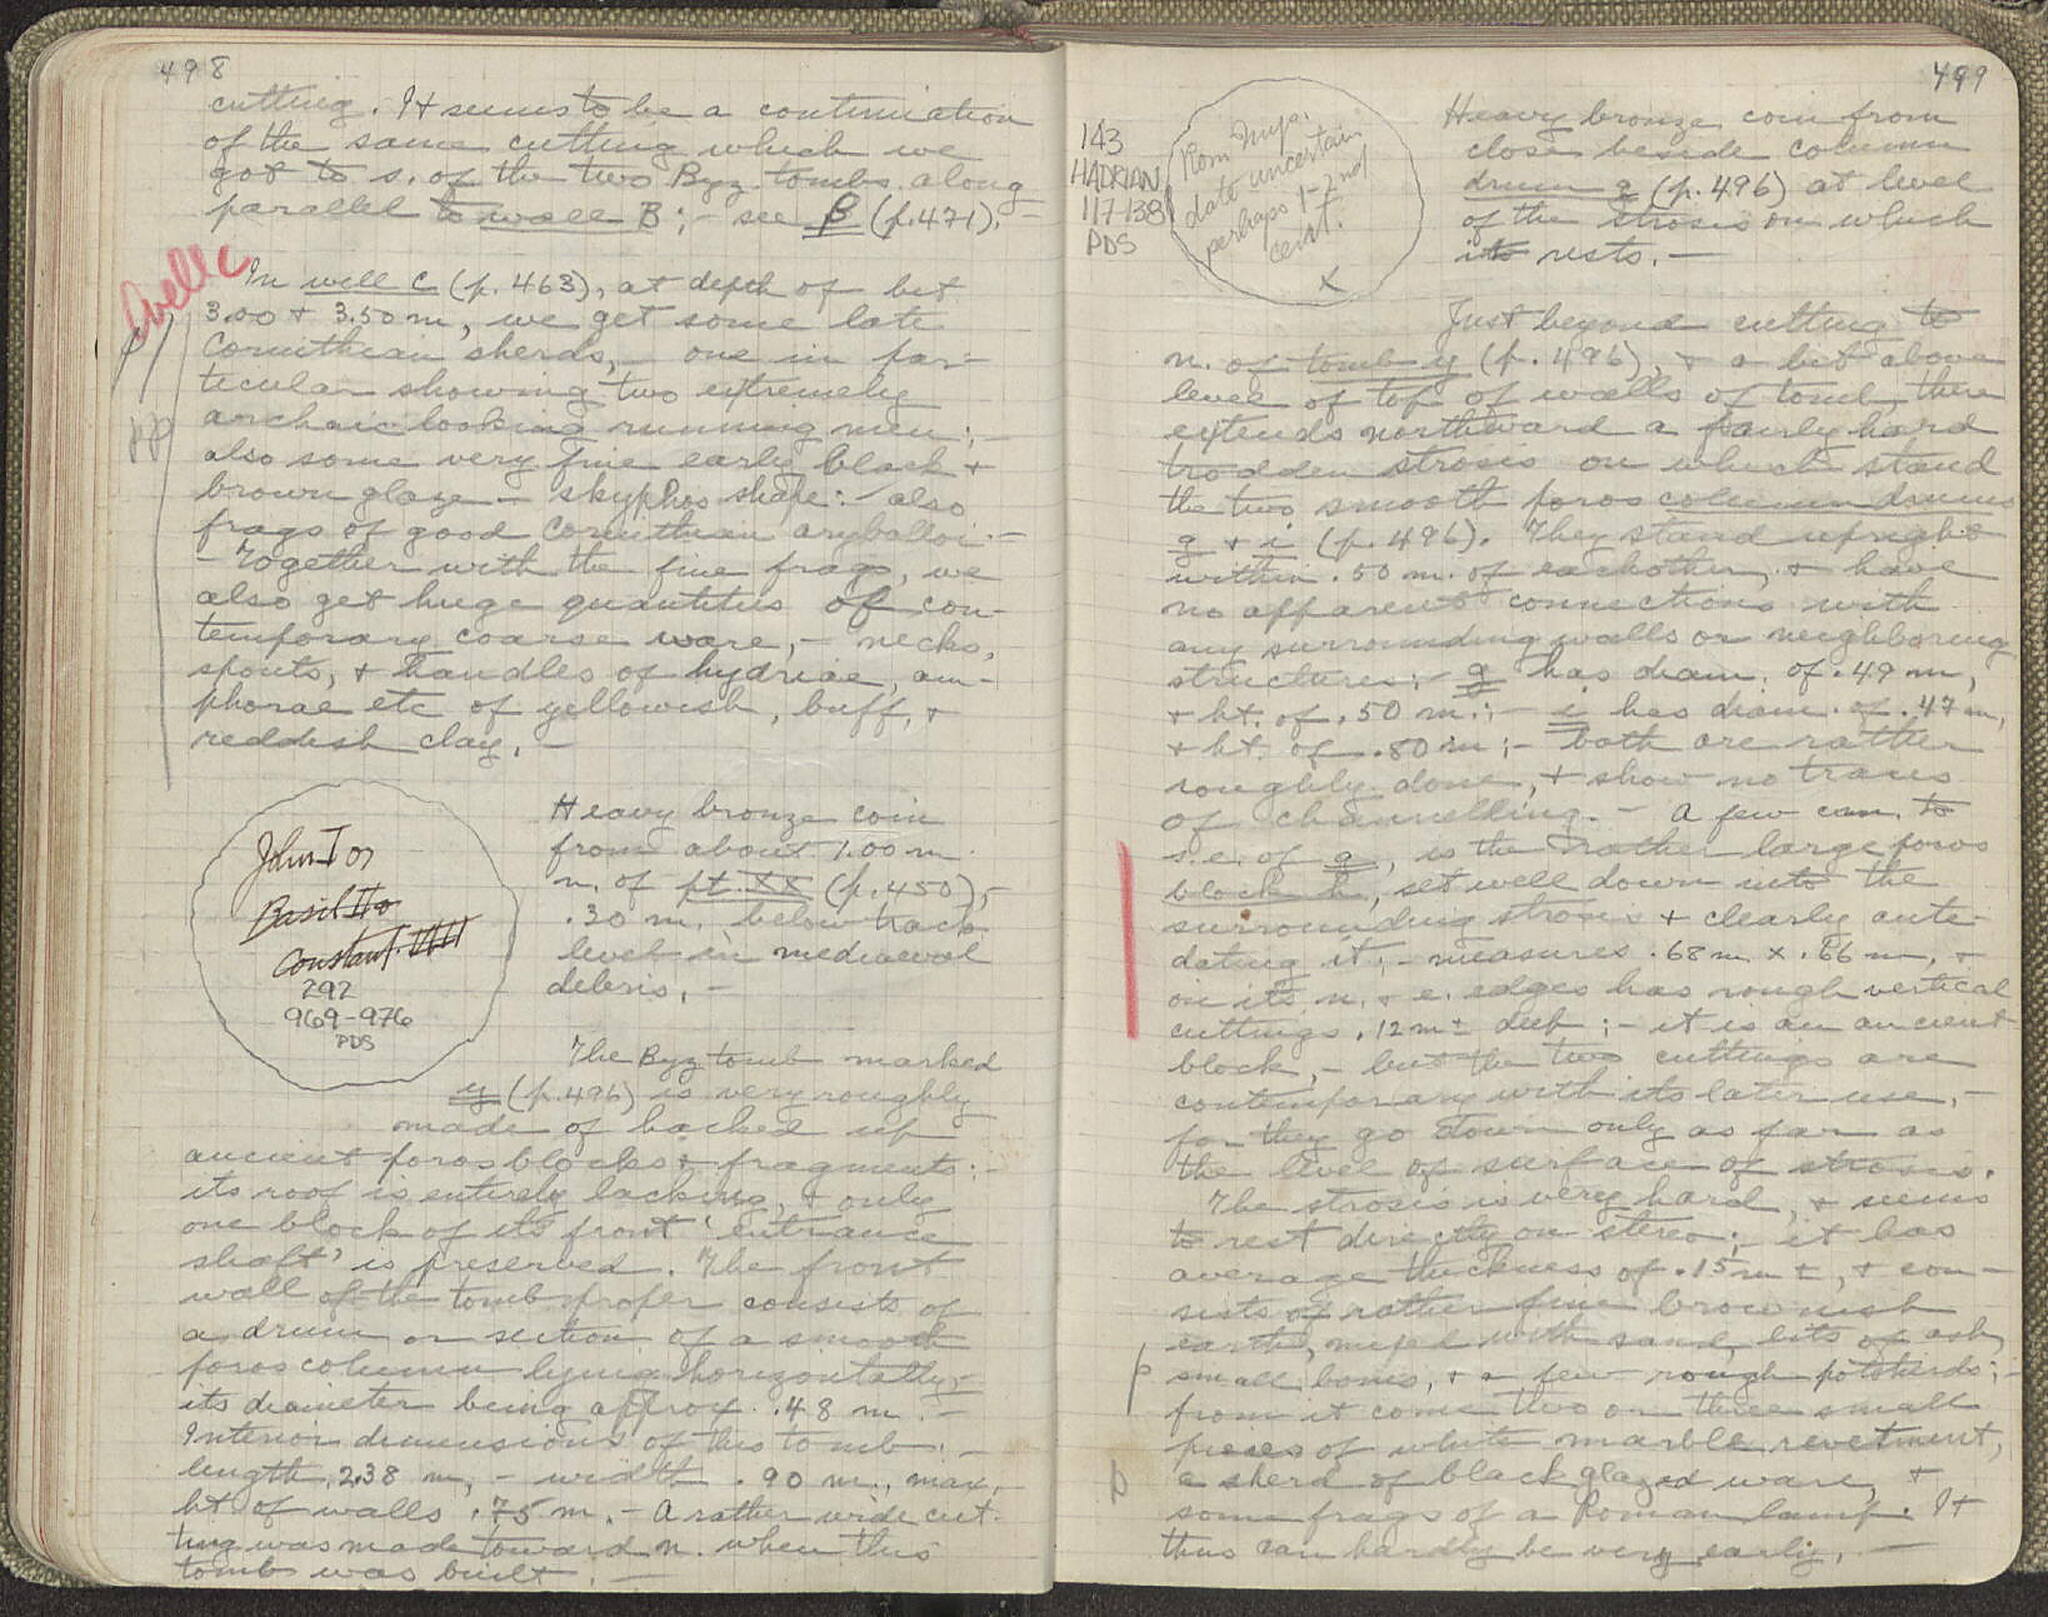 498
cutting. It seems to be a continuation
of the same cutting which we
got to s. of the two Byz. tombs along
parallel to wall B; - see β (p. 471). -
Well C
In well C (p. 463), at depth of bet
3.00 + 3.50 m, we get some late
Corinthian sherds, - one in par-
ticular showing two extremely
archaic looking running men; -
also some very fine early black +
brown glaze - skyphos shape: also
frags of good Corinthian aryballoi. -
- Together with the fine frags, we
also get huge quantities of con-
temporary coarse ware, - necks,
spouts, + handles of hydriae, am-
phorae etc of yellowish, buff, +
reddish clay. -
p
pp
John I or
Basil II o
Constant. VIII
292
969-976
PDS
Heavy bronze coin
from about 1.00 m.
n. of pt. XX (p. 450), -
.30 m. below track
level in mediaeval
debris. -
The Byz tomb marked
y (p. 496) is very roughly
made of backed up
ancient poros blocks + fragments: -
its roof is entirely lacking, + only
one block of its front 'entrance
shaft' is preserved. The front
wall of the tomb proper consists of
a drum or section of a smooth
poros column lying horizontally, -
its diameter being approx. .48 m. -
Interior dimensions of this tomb: -
length, 2.38 m, - width .90 m., max.
ht of walls .75 m. - A rather wide cut-
ting was made toward n. when this
tomb was built. -
499
143
HADRIAN
117-138
PDS
Rom Imp.
date uncertain
perhaps 1-2nd
cent.
X
Heavy bronze coin from
close beside column
drum g (p. 496) at level
of the strosis on which
it rests. -
Just beyond cutting to
n. of tomb y (p. 496), + a bit above
level of top of walls of tomb, there
extends northward a fairly hard
trodden strosis on which stand
the two smooth poros column drums
g + i (p. 496). They stand upright
within .50 m. of eachother, + have
no apparent connections with
any surrounding walls or neighboring
structures: - g has diam. of .49 m,
+ ht. of .50 m.; - i has diam. of .47 m,
+ ht. of .80 m; - both are rather
roughly done, + show no traces
of channelling. - A few cm. to
s.e. of g, is the rather large poros
block h, set well down into the
surrounding strosis + clearly ante-
dating it; - measures .68 m x .66 m, +
on its n. + e. edges has rough vertical
cuttings .12 m ± deep; - it is an ancient
block, - but the two cuttings are
contemporary with its later use, -
for they go down only as far as
the level of surface of strosis.
The strosis is very hard, + seems
to rest directly on stereo; it has
average thickness of .15 m ±, + con-
sists of rather fine brownish
earth, mixed with sand, bits of ash,
p
small bones, + a few rough potsherds; -
from it come two or three small
pieces of white marble revetment,
p
a sherd of black glazed ware, +
some frags of a Roman lamp. It
thus can hardly be very early. -